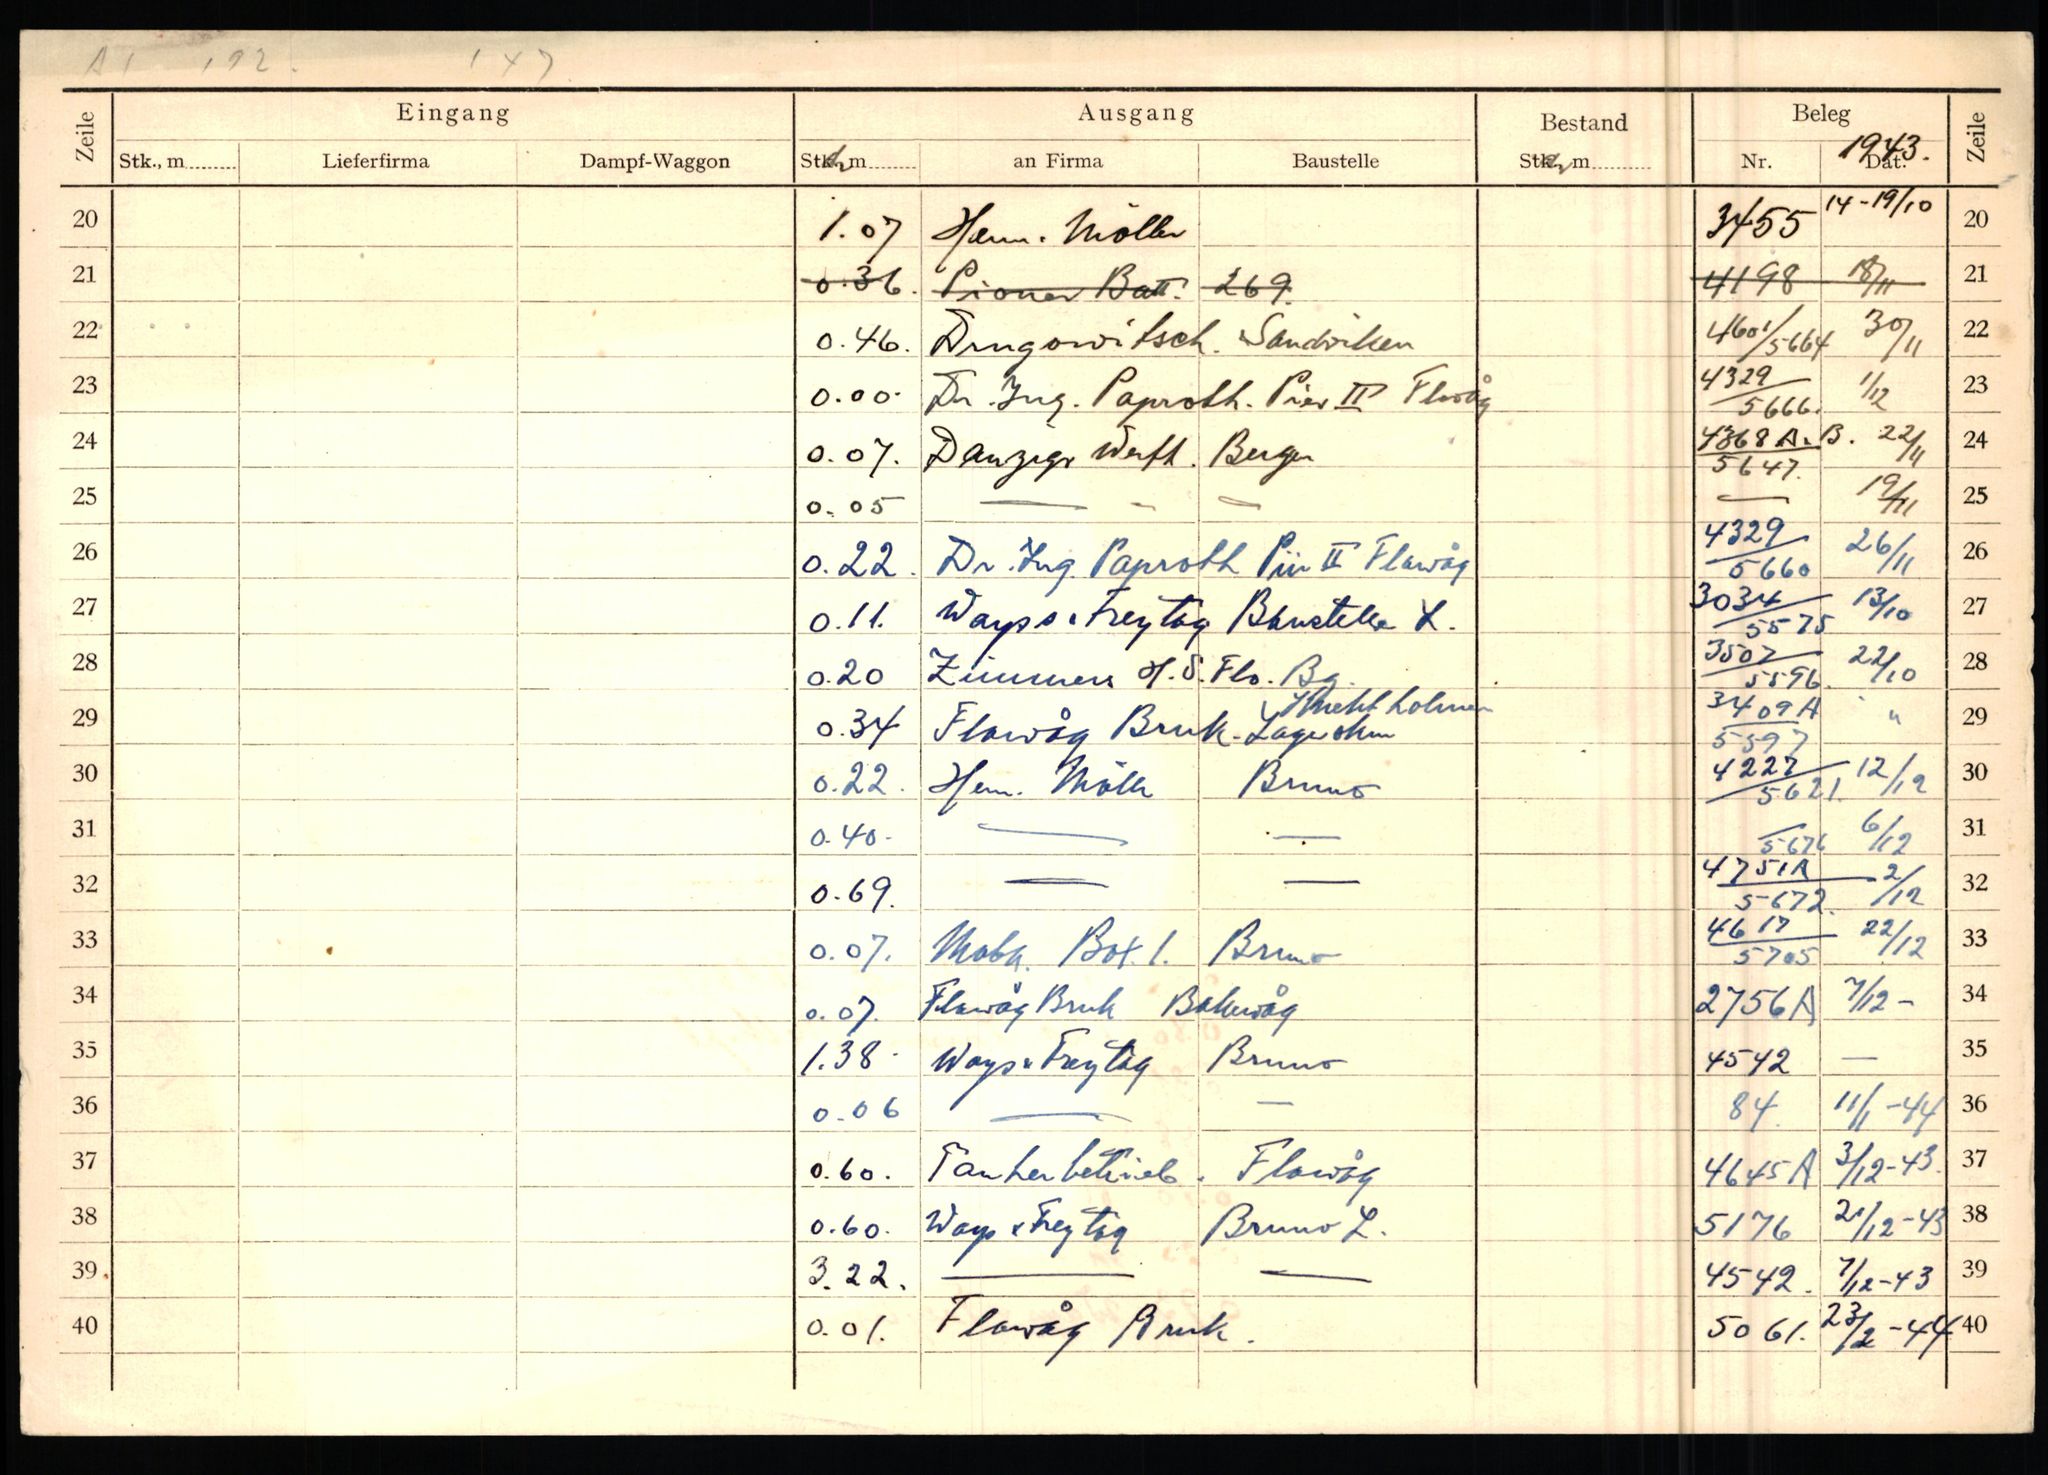 A1 192. 147
Zeile Eingang Ausgang Bestand Beleg Zeile
1943.
Stk., m Lieferfirma Dampf-Waggon Stk., m an Firma Baustelle Stk., m Nr. Dat.
20 1.07 Herm. Möller 3455 14-19/10 20
21 0.36. Pionier Batt. 269. 4198 18/11 21
22 0.46. Drugowitsch. Sandviken 4601/5664 30/11 22
23 0.00. Dr. Ing. Paproth. Pier II Flawåg 4329/5666. 1/12 23
24 0.07. Danzigr Werft. Bergen 4368 A.B./5647. 22/11 24
25 0.05 — - — — 19/11 25
26 0.22. Dr. Ing. Paproth Pier II Flawåg 4329/5660 26/11 26
27 0.11. Wayss & Freytag Baustelle L. 3034/5575 13/10 27
28 0.20 Zimmers H.S. Flo. Bg. 3507/5596. 22/10 28
29 0.34 Flawåg Bruk. 3409A/5597 " 29
30 0.22. Herm. Möller Bruno 4227/5621. 12/12 30
31 0.40. — — /5676 6/12 31
32 0.69. — — 4751A/5672. 2/12 32
33 0.07. Bat. 1. Bruno 4617/5705 22/12 33
34 0.07. Flawåg Bruk Bakewåg 2756A 7/12 - 34
35 1.38. Ways & Freytag Bruno 4542 — 35
36 0.06 — — 84. 11/1-44 36
37 0.60. Taucherbetrieb. Flawåg 4645A 3/12-43. 37
38 0.60. Ways & Freytag Bruno L. 5176 21/12-43 38
39 3.22. — — 4542. 7/12-43 39
40 0.01. Flawåg Bruk. 5061. 23/2-44 40